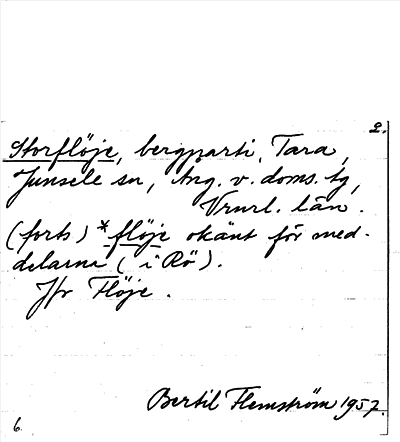 2.
Storflöje, bergparti, Tara,
Junsele sn, Ång. v. doms. tg,
Vnrl. län.
(forts) *flöje okänt för med-
delarna (i Rö).
Jfr Flöje.
Bertil Flemström 1957.
6.